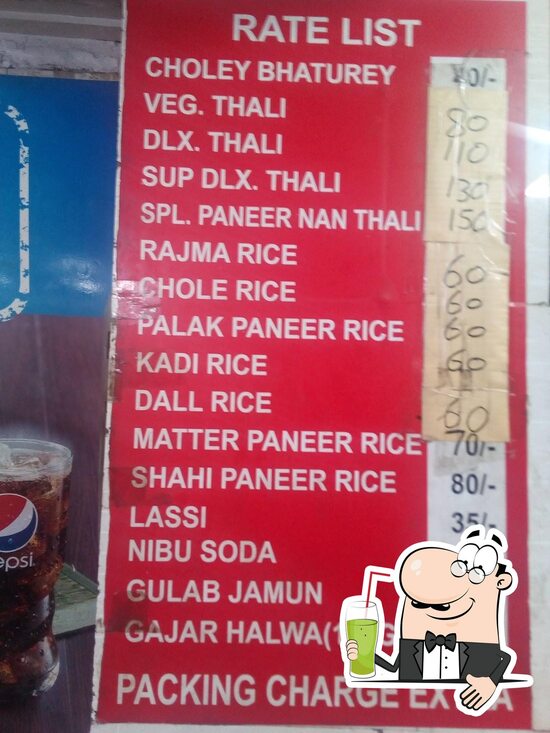 RATE LIST
CHOLEY BHATUREY
VEG. THALI 80
DLX. THALI 110
SUP DLX. THALI 130
SPL. PANEER NAN THALI 150
RAJMA RICE 60
CHOLE RICE 60
PALAK PANEER RICE 60
KADI RICE 60
DALL RICE 60
MATTER PANEER RICE 70/-
SHAHI PANEER RICE 80/-
LASSI 35/-
NIBU SODA
GULAB JAMUN
GAJAR HALWA
PACKING CHARGE
epsi